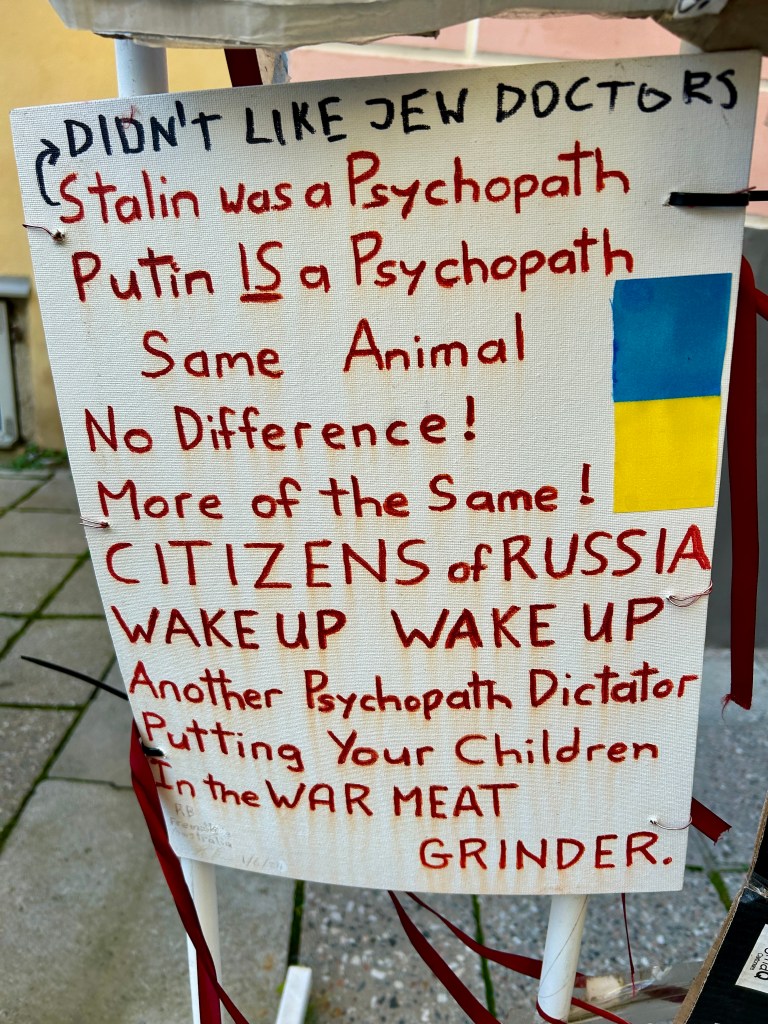 DIDN'T LIKE JEW DOCTORS
Stalin was a Psychopath
Putin IS a Psychopath
Same Animal
No Difference!
More of the Same!
CITIZENS of RUSSIA
WAKE UP WAKE UP
Another Psychopath Dictator
Putting Your Children
In the WAR MEAT
GRINDER.
RB
Australia